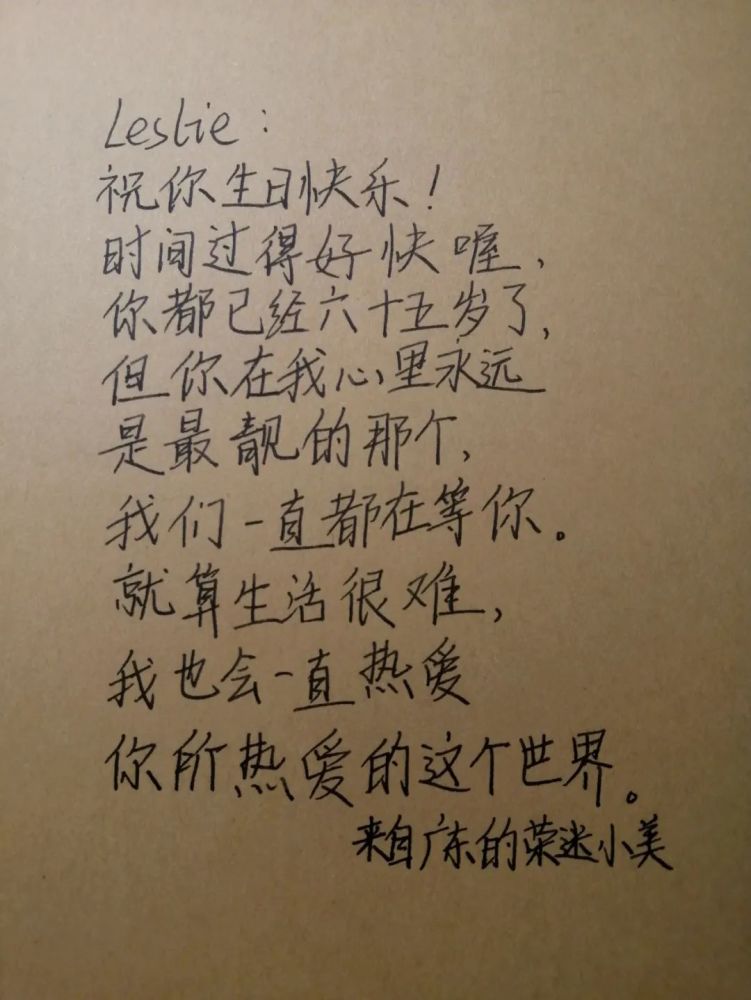 Leslie：
祝你生日快乐！
时间过得好快喔，
你都已经六十五岁了，
但你在我心里永远
是最靓的那个，
我们一直都在等你。
就算生活很难，
我也会一直热爱
你所热爱的这个世界。
来自广东的荣迷小美